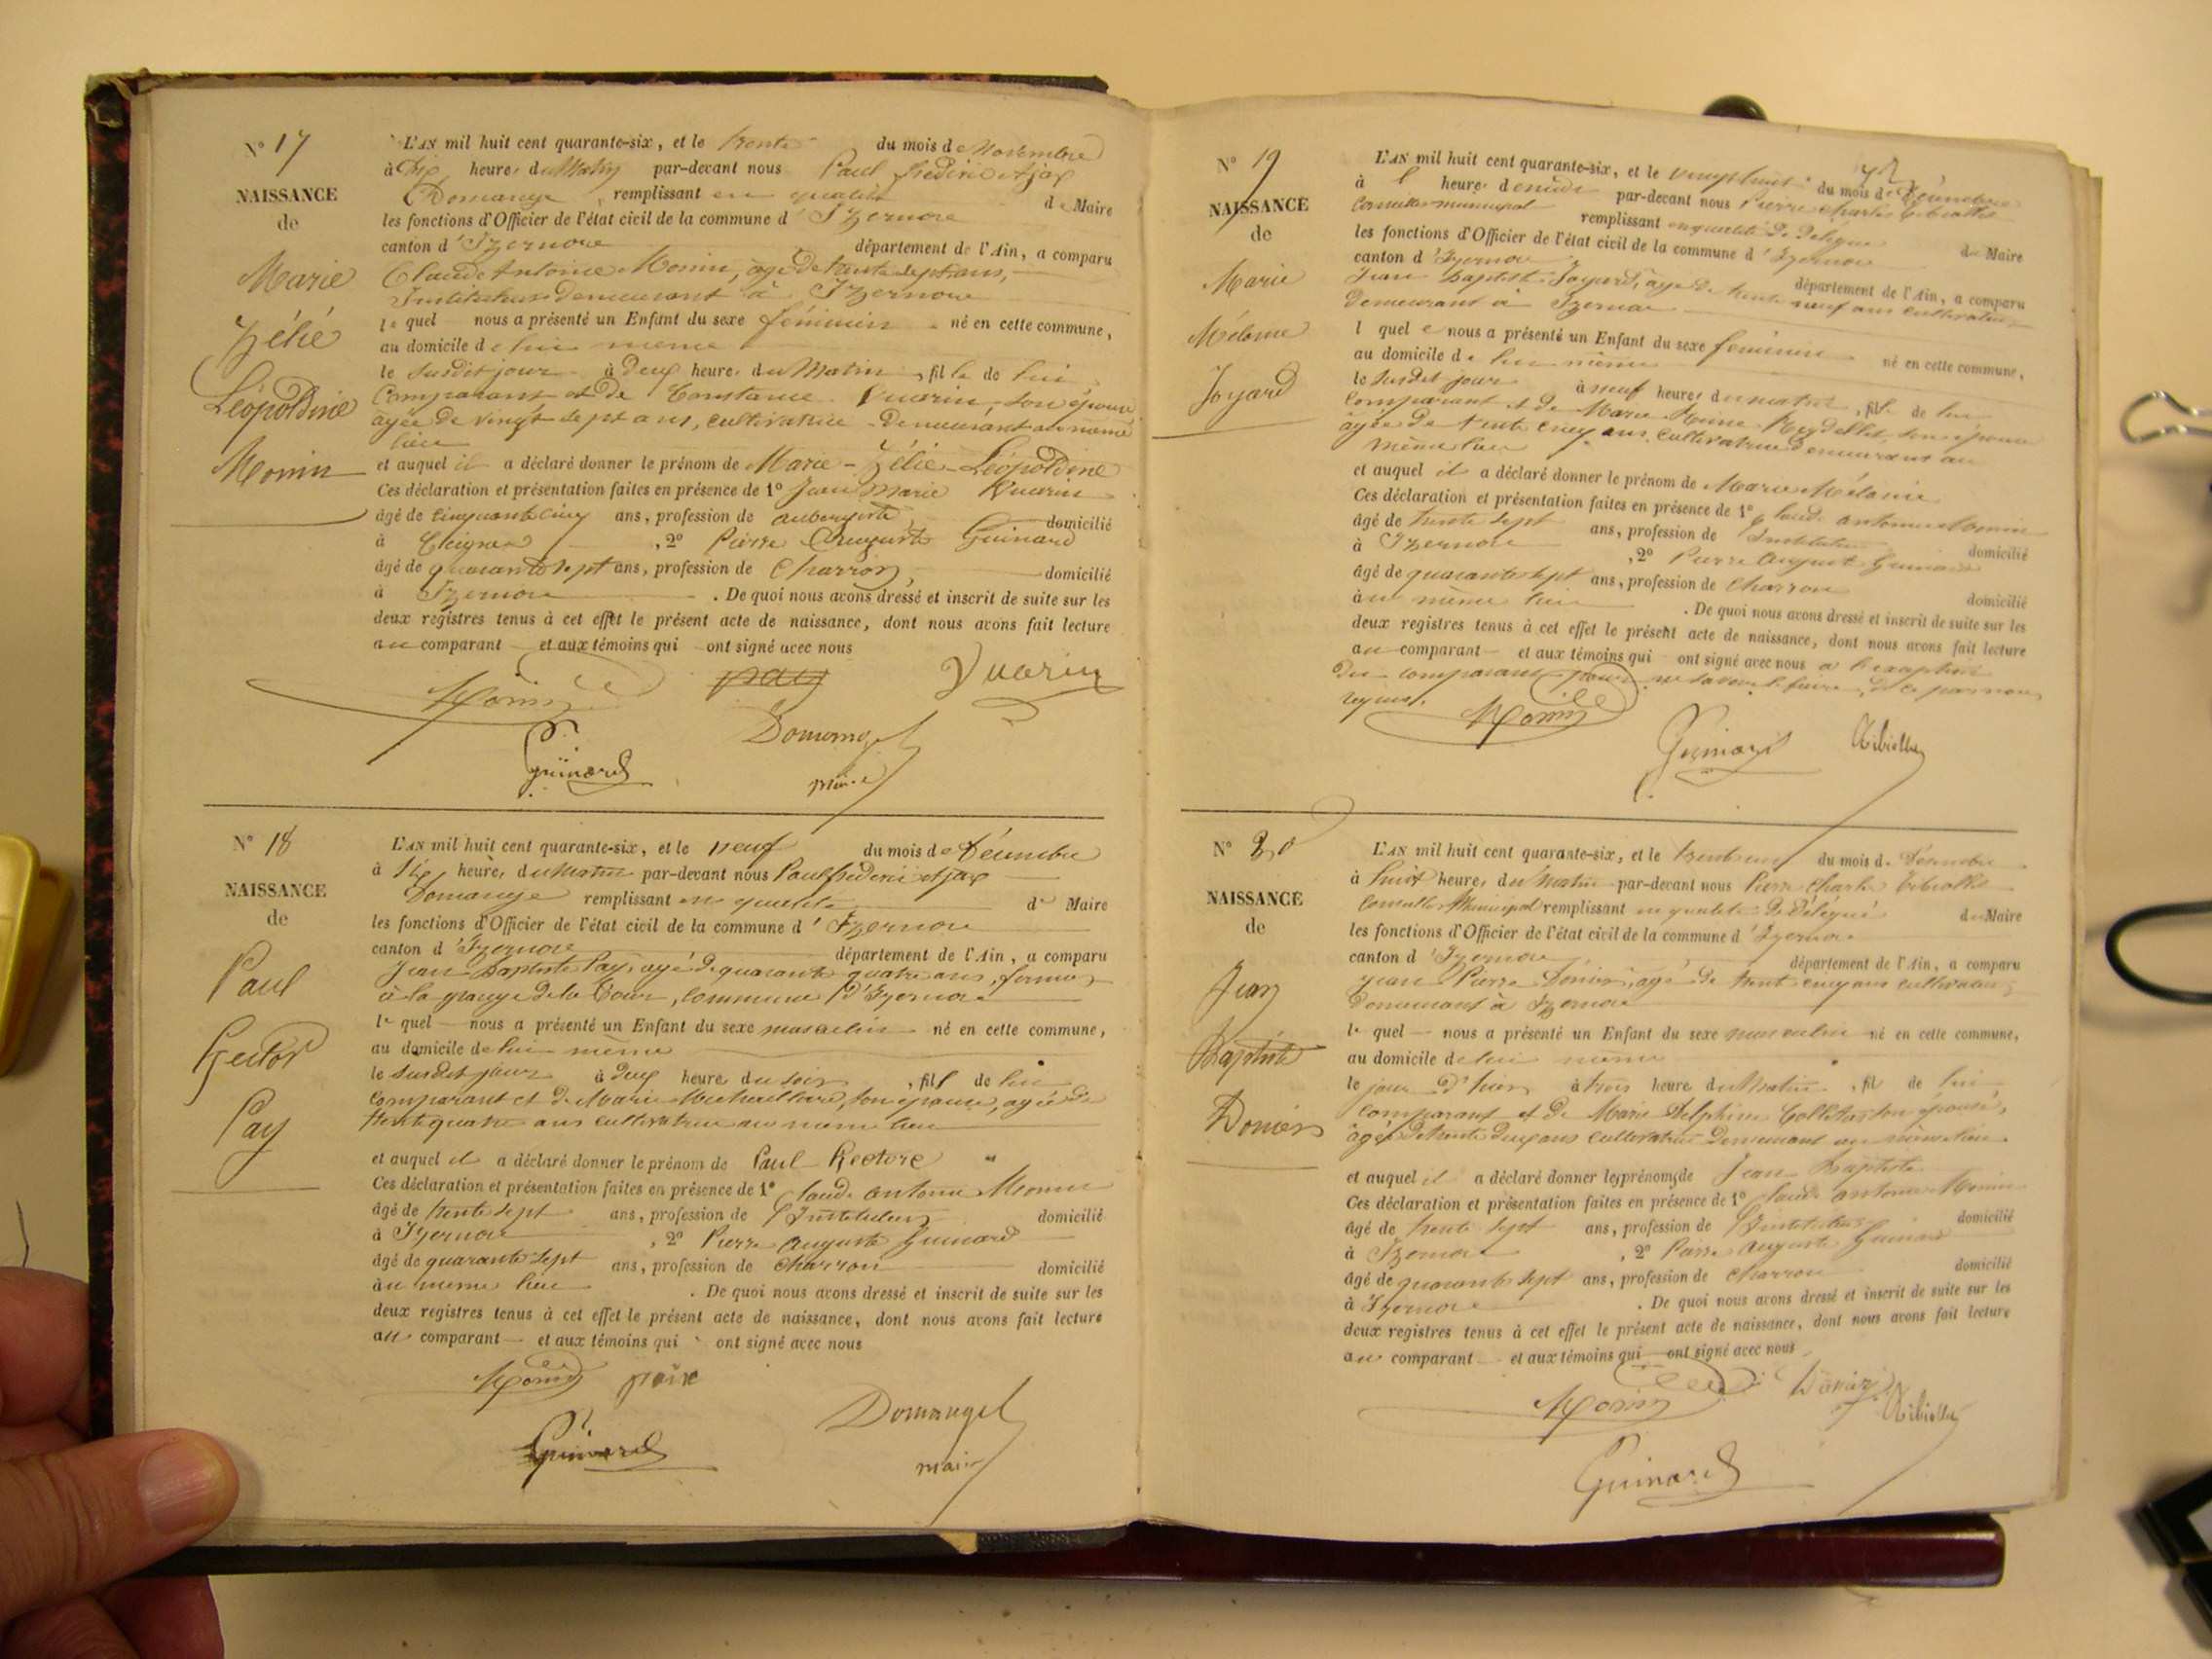 N° 17
NAISSANCE
de
Marie
Zélie
Léopoldine
Monin
L'AN mil huit cent quarante-six, et le trente du mois de Novembre
à dix heures du Matin par-devant nous Paul frédéric Ajax
Domange, remplissant en qualité de Maire
les fonctions d'Officier de l'état civil de la commune d'Izernore
canton d'Izernore département de l'Ain, a comparu
Claude Antoine Monin, âgé de trente sept ans,
Instituteur demeurant à Izernore
le quel nous a présenté un Enfant du sexe féminin né en cette commune,
au domicile de lui même
le susdit jour à deux heures du Matin, fille de lui
Comparant et de Constance Vuarin, son épouse
âgée de vingt sept ans, cultivatrice demeurant au même
lieu
et auquel il a déclaré donner le prénom de Marie-Zélie-Léopoldine
Ces déclaration et présentation faites en présence de 1° Jean Marie Vuarin
âgé de cinquante cinq ans, profession de aubergiste domicilié
à , 2° Pierre Auguste Guinard
âgé de quarante sept ans, profession de Charron, domicilié
à Izernore . De quoi nous avons dressé et inscrit de suite sur les
deux registres tenus à cet effet le présent acte de naissance, dont nous avons fait lecture
au comparant et aux témoins qui ont signé avec nous
Monin pay Vuarin
Domange
Guinard maire
N° 18
NAISSANCE
de
Paul
Hector
Pay
L'AN mil huit cent quarante-six, et le neuf du mois de Décembre
à heures du Matin par-devant nous Paul frédéric Ajax
Domange remplissant en qualité de Maire
les fonctions d'Officier de l'état civil de la commune d'Izernore
canton d'Izernore département de l'Ain, a comparu
Jean Baptiste Pay, âgé de quarante quatre ans, fermier
à la grange de la Cour, commune d'Izernore
le quel nous a présenté un Enfant du sexe masculin né en cette commune,
au domicile de lui même
le susdit jour à deux heures du soir, fils de lui
comparant et de Marie son épouse, âgée de
trente quatre ans cultivatrice au même lieu
et auquel il a déclaré donner le prénom de Paul Hectore
Ces déclaration et présentation faites en présence de 1° Claude antoine Monin
âgé de trente sept ans, profession d'Instituteur domicilié
à Izernore, 2° Pierre Auguste Guinard
âgé de quarante sept ans, profession de charron domicilié
au même lieu . De quoi nous avons dressé et inscrit de suite sur les
deux registres tenus à cet effet le présent acte de naissance, dont nous avons fait lecture
au comparant et aux témoins qui ont signé avec nous
Monin
Guinard Domange
maire
N° 19
NAISSANCE
de
Marie
Mélanie
Joyard
L'AN mil huit cent quarante-six, et le vingt huit du mois de Décembre
à heures de midi par-devant nous Pierre Charles
Conseiller municipal remplissant en qualité de délégué du Maire
les fonctions d'Officier de l'état civil de la commune d'Izernore
canton d'Izernore département de l'Ain, a comparu
Jean Baptiste Joyard, âgé de trente neuf ans cultivateur
demeurant à Izernore
lequel nous a présenté un Enfant du sexe féminin né en cette commune,
au domicile de lui même
le susdit jour à neuf heures du matin, fille de lui
comparant et de Marie Reydellet, son épouse
âgée de trente cinq ans, cultivatrice demeurant au
même lieu
et auquel il a déclaré donner le prénom de Marie Mélanie
Ces déclaration et présentation faites en présence de 1° Claude antoine Monin
âgé de trente sept ans, profession de Instituteur domicilié
à Izernore, 2° Pierre Auguste Guinard
âgé de quarante sept ans, profession de Charron domicilié
au même lieu . De quoi nous avons dressé et inscrit de suite sur les
deux registres tenus à cet effet le présent acte de naissance, dont nous avons fait lecture
au comparant et aux témoins qui ont signé avec nous à l'exception
du comparant pour ne savoir le faire, de ce par nous
requis.
Monin Guinard
N° 20
NAISSANCE
de
Jean
Baptiste
L'AN mil huit cent quarante-six, et le trente un du mois de Décembre
à huit heures du Matin par-devant nous Pierre Charles
Conseiller Municipal remplissant en qualité de Délégué du Maire
les fonctions d'Officier de l'état civil de la commune d'Izernore
canton d'Izernore département de l'Ain, a comparu
Jean Pierre âgé de trente cinq ans cultivateur
demeurant à Izernore
le quel nous a présenté un Enfant du sexe masculin né en cette commune,
au domicile de lui même
le jour d'hier à trois heures du Matin, fils de lui
comparant et de Marie Delphine Collétaz son épouse,
âgée de trente deux ans cultivatrice demeurant au même lieu
et auquel il a déclaré donner les prénoms de Jean Baptiste
Ces déclaration et présentation faites en présence de 1° Claude antoine Monin
âgé de trente sept ans, profession d'Instituteur domicilié
à Izernore, 2° Pierre Auguste Guinard
âgé de quarante sept ans, profession de charron domicilié
à Izernore . De quoi nous avons dressé et inscrit de suite sur les
deux registres tenus à cet effet le présent acte de naissance, dont nous avons fait lecture
au comparant et aux témoins qui ont signé avec nous
Monin
Guinard